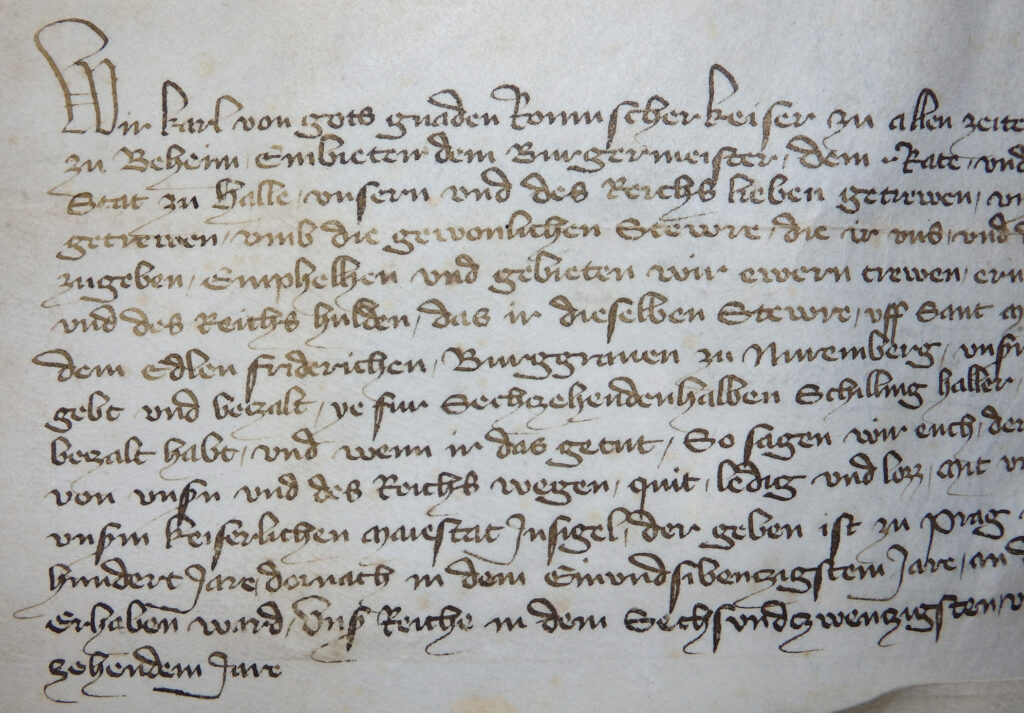 Wir karl von gots gnaden Romischer keiser zu allen zeite
zu Beheim Embieten dem Burgermeister, dem Rate und
Stat zu Halle, unsern und des Reichs lieben getrewen,
getrewen, umb die gewonlichen Stewre, die ir uns, und
zugeben, Emphelhen und gebieten wir ewern trewen, ern
und des Reichs hulden, das ir dieselben Stewre, uff Sant
dem Edlen fridrichen, Burggraven zu Nuremberg, unsn
gebt und bezalt, ye fur Sechzehendenhalben Schilling haller,
bezalt habt, und wenn ir das getut, So sagen wir euch, der
von unsn und des Reichs wegen, quit, ledig und loz, Mit
unsm keiserlichen Maiestat Insigel, der geben ist zu Prag
hundert Jare, dornach in dem Einundsibenczigstem Jare, an
Erhaben ward, Uns Reiche in dem Sechsundczwenzigsten,
zehendem Jare